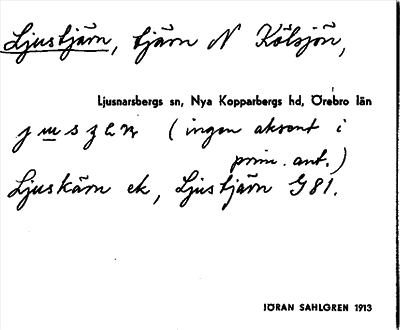 Ljustjärn, tjärn N Kölsjön,
Ljusnarsbergs sn, Nya Kopparbergs hd, Örebro län
(ingen aksent i
prim. ant.)
Ljuskärn ek, Ljustjärn G 81.
JÖRAN SAHLGREN 1913